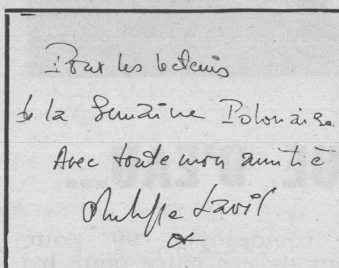 Pour les lecteurs
de la Semaine Polonaise
Avec toute mon amitié
Philippe Lavil